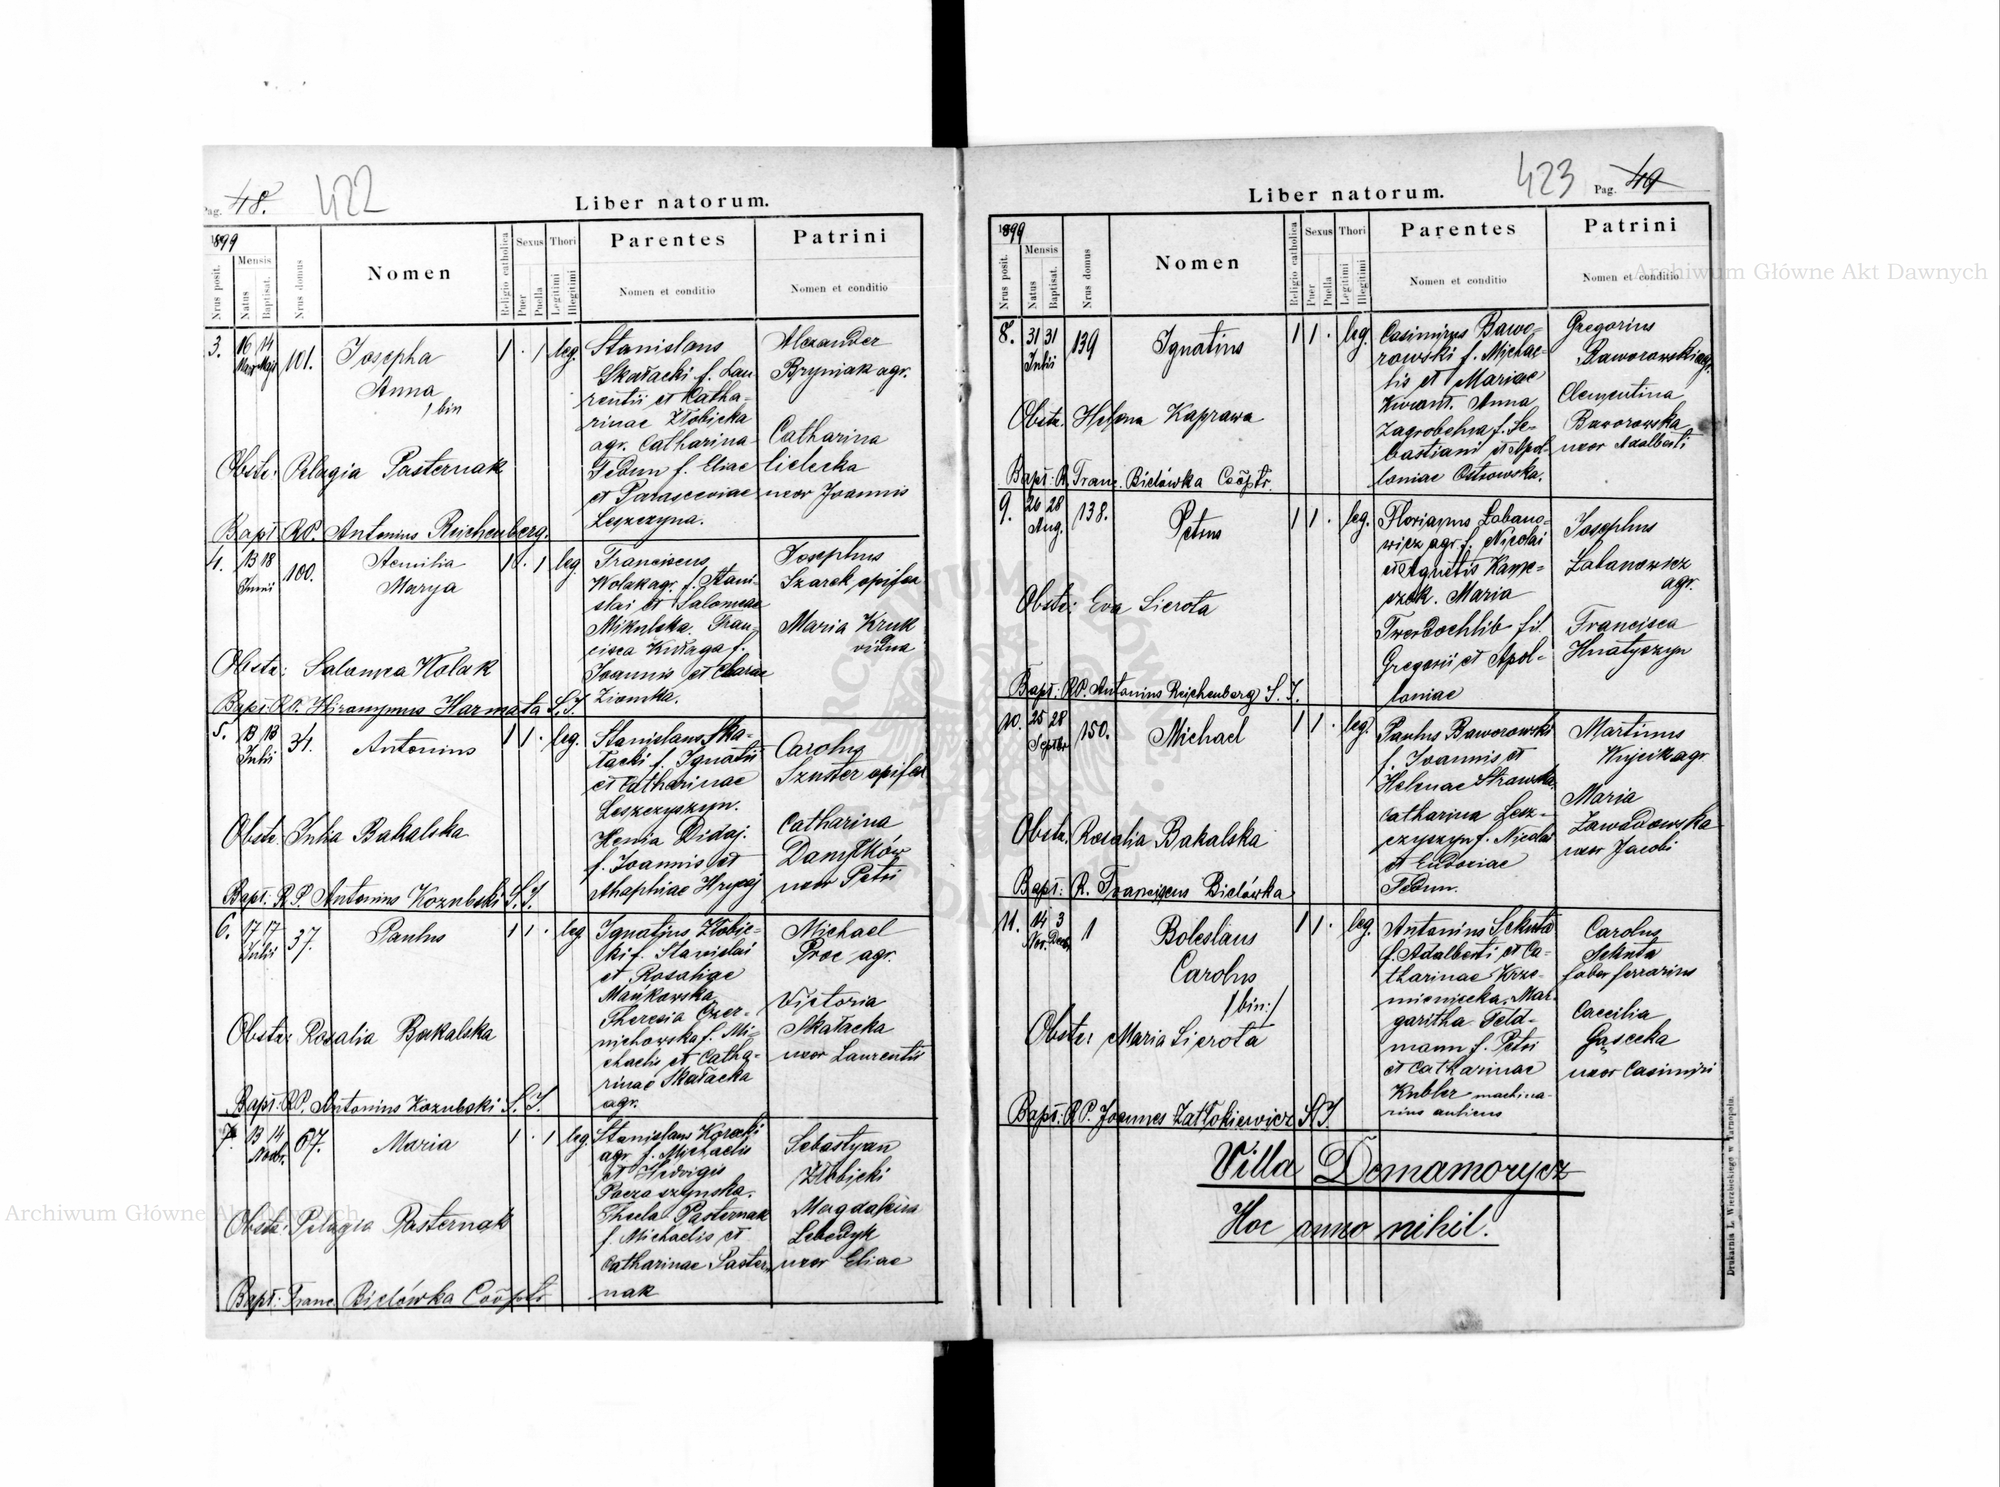 Pag. 48. 422
Liber natorum.
1899
Nrus posit.
Mensis
Natus
Baptisat.
Nrus domus
Nomen
Religio catholica
Sexus
Puer
Puella
Thori
Legitimi
Illegitimi
Parentes
Nomen et conditio
Patrini
Nomen et conditio
3. 16 14 101. Josepha 1 . 1 leg. Stanislaus Alexander
Maji
Anna
/ bin
Skałacki f. Lau- Bryniak agr.
rentii et Catha-
rinae Złobicka
agr. Catharina Catharina
Obste: Pelagia Pasternak
Fedun f. Eliae
et Parasceviae uxor Joannis
Leszczyna.
Bapt. RP. Antonius Reichenberg.
4. 13 18 100. Aemilia 1 . 1 leg Franciscus Josephus
Junii Marya
Wolak agr. f. Stani- Szarek opifex
slai et Salomeae
Mikulska. Fran- Maria Kruk
cisca f. vidua
Obste: Salomea Wolak
Joannis et Clarae
Ziomka.
Bapt. RP. Hieronymus Harmata S. J.
5. 13 18 34. Antonius 1 1 . leg. Stanislaus Ska- Carolus
Julii
łacki f. Ignatii Szuster opifex
et Catharinae
Leszczyszyn.
Obste. Julia Bakalska
Henia Didaj. Catharina
f. Joannis et Danyłków
Ahaphiae Hrycaj uxor Petri
Bapt: R.P. Antonius Kozubski S. J.
6. 17 17 37. Paulus 1 1 . leg Ignatius Złobic- Michael
Julii
ki f. Stanislai Proc agr.
et Rosaliae
Mańkowska. Victoria
Obste: Rosalia Bakalska
Theresia Czer- Skałacka
nichowska f. Mi- uxor Laurentii
chaelis et Catha-
rinae Skałacka
agr.
Bapt: RP. Antonius Kozubski S. J.
7. 13 14 67. Maria 1 . 1 leg Stanislaus Korecki Sebastyan
agr. f. Michaelis Złobicki
et Hedvigis
Thecla Pasternak Magdalena
Obste: Pelagia Pasternak
f. Michaelis et Lebedyk
Catharinae Paster- uxor Eliae
nak
Bapt: Franc. Bielówka Coöptr
423 Pag. 49
Liber natorum.
1899
Nrus posit.
Mensis
Natus
Baptisat.
Nrus domus
Nomen
Religio catholica
Sexus
Puer
Puella
Thori
Legitimi
Illegitimi
Parentes
Nomen et conditio
Patrini
Nomen et conditio
8. 31 31 139 Ignatius 1 1 . leg. Casimirus Bawo- Gregorius
Julii
rowski f. Michae- Baworowski agr.
lis et Mariae
Anna Clementina
Obste. Helena Kaprawa
Zagrobelna f. Se- Baworowska
bastiani et Apol- uxor Adalberti
loniae Ostrowska.
Bapt: R. Franc. Bielówka Coöptr.
9. 26 28 138. Petrus 1 1 . leg. Florianus Łabano- Josephus
Aug.
wicz agr. f. Nicolai Łabanowicz
et Agnetis agr.
Maria
Obste: Eva Sierota
Twerdochlib fil. Francisca
Gregorii et Apol- Hnatyszyn
loniae
Bapt: RP. Antonius Reichenberg S. J.
10. 25 28 150. Michael 1 1 . leg. Paulus Baworowski Martinus
Septbr
f. Joannis et Wujcik agr.
Helenae Strawka.
Catharina Lesz- Maria
Obste. Rosalia Bakalska
czyszyn f. Nicolai Zawadowska
et Eudoxiae uxor Jacobi
Fedun.
Bapt: R. Franciscus Bielówka
11. 14 3 1 Boleslaus 1 1 . leg. Antonius Sekuta Carolus
Nov. Decb.
Carolus
/bin:/
f. Adalberti et Ca- Sekuta
tharinae Krze- faber ferrarius
mieniecka. Mar-
garitha Feld- Caecilia
Obste: Maria Sierota
mann f. Petri Gąsecka
et Catharinae uxor Casimiri
Kubler machina-
rius aulicus
Bapt: R.P. Joannes Załłokiewicz S. J.
Villa Domamorycz
Hoc anno nihil.
Drukarnia L. Wierzbickiego w Tarnopolu.
Archiwum Główne Akt Dawnych
Archiwum Główne Akt Dawnych